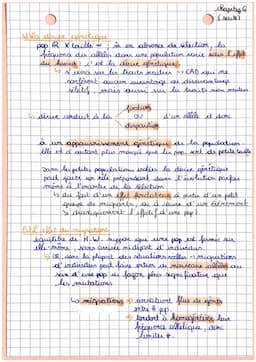 Chapitre 6
(suite)
1) La dérive génétique
pop R X taille ∞, en absence de sélection, la
fréquence des allèles dans une population varie sous l'effet
du hasard : c'est la dérive génétique
↳ s'exerce sur les traits neutres → CAD qui ne
confèrent aucun avantage ou désavantage
sélectif, mais aussi sur les traits non neutres
↳ dérive conduit à la fixation
OU d'un allèle et donc
disparition
à un appauvrissement génétique de la population
elle est d'autant plus marquée que la pop. est de petite taille
Dans les petites populations isolées la dérive génétique
peut jouer un rôle prépondérant dans l'évolution parfois
même à l'encontre de la sélection
↳ du fait d'un effet fondateur à partir d'un petit
groupe de migrants, ou à cause d'un évènement
↘ drastiquement l'effectif d'une pop).
2) L'effet des migrations
équilibre de H.W. suppose que une pop est fermée sur
elle-même, sans arrivée ni départ d'individus.
↳ Or, dans la plupart des situations réelles → migrations
d'individus peut faire entrer de nouveaux allèles au
sein d'une pop de façon plus significative que
les mutations
↳ migrations → entretiennent flux de gènes
entre ≠ pop.
↳ tendent à homogénéiser leur
fréquence allélique, donc
limiter ≠.